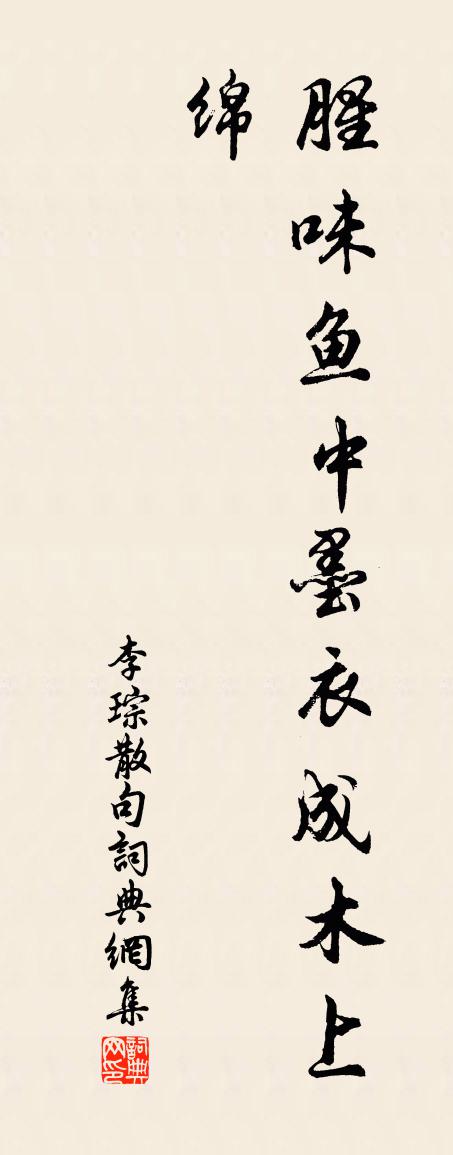 腥味鱼中墨衣成木上
绵
李琮散句詞典網集
詞典网印